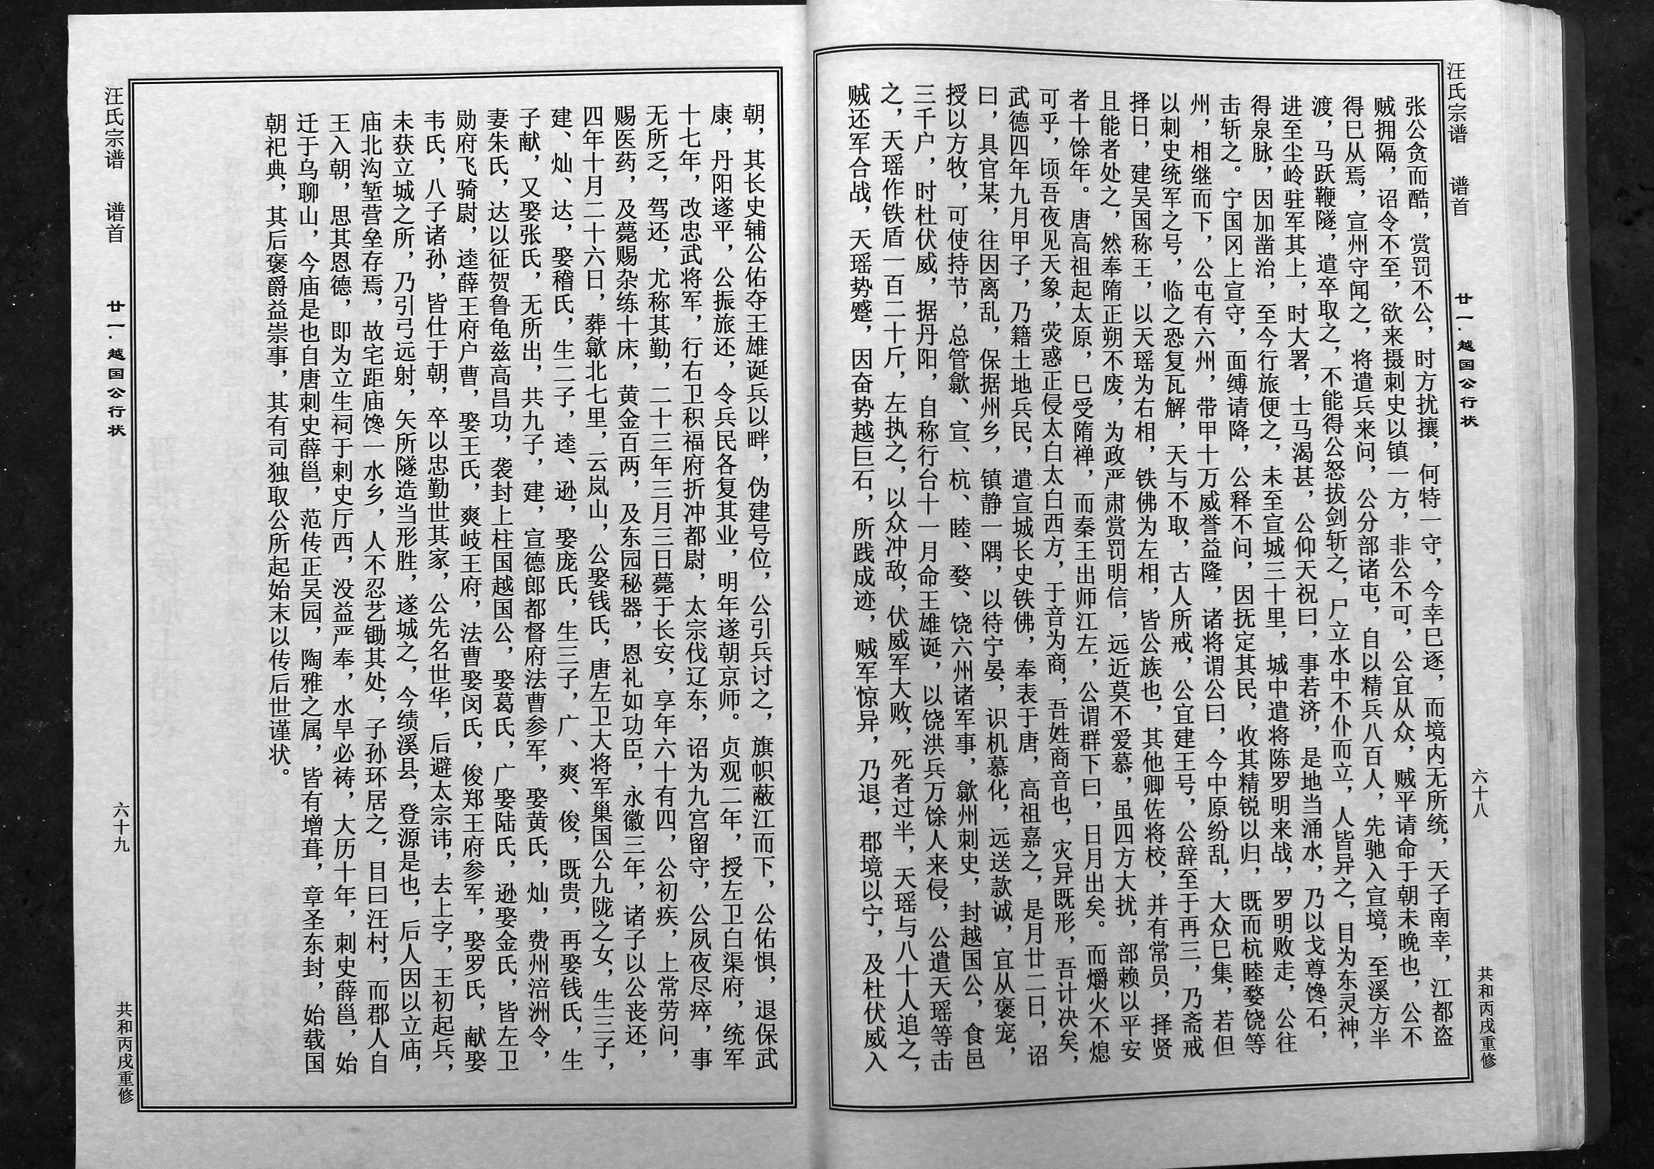 汪氏宗谱 谱首 廿一·越国公行状 六十八 共和丙戌重修
张公贪而酷，赏罚不公，时方扰攘，何特一守，今幸巳逐，而境内无所统，天子南幸，江都盗
贼拥隔，诏令不至，欲来摄刺史以镇一方，非公不可，公宜从众，贼平请命于朝未晚也，公不
得巳从焉，宣州守闻之，将遣兵来问，公分部诸屯，自以精兵八百人，先驰入宣境，至溪方半
渡，马跃鞭隧，遣卒取之，不能得公怒拔剑斩之，尸立水中不仆而立，人皆异之，目为东灵神，
进至尘岭驻军其上，时大署，士马渴甚，公仰天祝曰，事若济，是地当涌水，乃以戈尊馋石，
得泉脉，因加凿治，至今行旅便之，未至宣城三十里，城中遣将陈罗明来战，罗明败走，公往
击斩之。宁国冈上宣守，面缚请降，公释不问，因抚定其民，收其精锐以归，既而杭睦婺饶等
州，相继而下，公屯有六州，带甲十万威誉益隆，诸将谓公曰，今中原纷乱，大众巳集，若但
以刺史统军之号，临之恐复瓦解，天与不取，古人所戒，公宜建王号，公辞至于再三，乃斋戒
择日，建吴国称王，以天瑶为右相，铁佛为左相，皆公族也，其他卿佐将校，并有常员，择贤
且能者处之，然奉隋正朔不废，为政严肃赏罚明信，远近莫不爱慕，虽四方大扰，部赖以平安
者十馀年。唐高祖起太原，巳受隋禅，而秦王出师江左，公谓群下曰，日月出矣。而爝火不熄
可乎，顷吾夜见天象，荧惑正侵太白太白西方，于音为商，吾姓商音也，灾异既形，吾计决矣，
武德四年九月甲子，乃籍土地兵民，遣宣城长史铁佛，奉表于唐，高祖嘉之，是月廿二日，诏
曰，具官某，往因离乱，保据州乡，镇静一隅，以待宁晏，识机慕化，远送款诚，宜从褒宠，
授以方牧，可使持节，总管歙、宣、杭、睦、婺、饶六州诸军事，歙州刺史，封越国公，食邑
三千户，时杜伏威，据丹阳，自称行台十一月命王雄诞，以饶洪兵万馀人来侵，公遣天瑶等击
之，天瑶作铁盾一百二十斤，左执之，以众冲敌，伏威军大败，死者过半，天瑶与八十人追之，
贼还军合战，天瑶势蹙，因奋势越巨石，所践成迹，贼军惊异，乃退，郡境以宁，及杜伏威入
朝，其长史辅公佑夺王雄诞兵以畔，伪建号位，公引兵讨之，旗帜蔽江而下，公佑惧，退保武
康，丹阳遂平，公振旅还，令兵民各复其业，明年遂朝京师。贞观二年，授左卫白渠府，统军
十七年，改忠武将军，行右卫积福府折冲都尉，太宗伐辽东，诏为九宫留守，公夙夜尽瘁，事
无所乏，驾还，尤称其勤，二十三年三月三日薨于长安，享年六十有四，公初疾，上常劳问，
赐医药，及薨赐杂练十床，黄金百两，及东园秘器，恩礼如功臣，永徽三年，诸子以公丧还，
四年十月二十六日，葬歙北七里，云岚山，公娶钱氏，唐左卫大将军巢国公九陇之女，生三子，
建、灿、达，娶稽氏，生二子，逵、逊，娶庞氏，生三子，广、爽、俊，既贵，再娶钱氏，生
子献，又娶张氏，无所出，共九子，建，宣德郎都督府法曹参军，娶黄氏，灿，费州涪洲令，
妻朱氏，达以征贺鲁龟兹高昌功，袭封上柱国越国公，娶葛氏，广娶陆氏，逊娶金氏，皆左卫
勋府飞骑尉，逵薛王府户曹，娶王氏，爽岐王府，法曹娶闵氏，俊郑王府参军，娶罗氏，献娶
韦氏，八子诸孙，皆仕于朝，卒以忠勤世其家，公先名世华，后避太宗讳，去上字，王初起兵，
未获立城之所，乃引弓远射，矢所隧造当形胜，遂城之，今绩溪县，登源是也，后人因以立庙，
庙北沟堑营垒存焉，故宅距庙馋一水乡，人不忍艺锄其处，子孙环居之，目曰汪村，而郡人自
王入朝，思其恩德，即为立生祠于剌史厅西，没益严奉，水旱必祷，大历十年，刺史薛邕，始
迁于乌聊山，今庙是也自唐刺史薛邕，范传正吴园，陶雅之属，皆有增葺，章圣东封，始载国
朝祀典，其后褒爵益崇事，其有司独取公所起始末以传后世谨状。
汪氏宗谱 谱首 廿一·越国公行状 六十九 共和丙戌重修